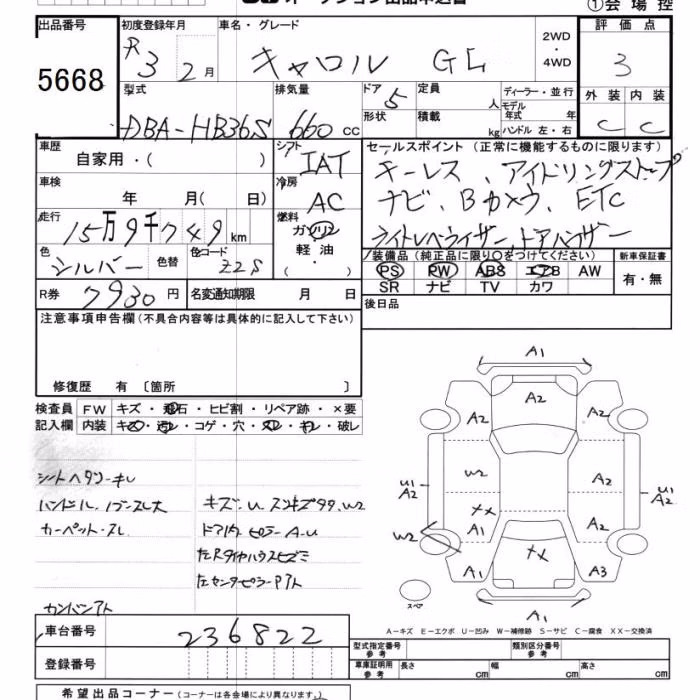 オークション出品申込書 ①会場控
出品番号 初度登録年月 車名・グレード 2WD ・ 4WD 評価点
5668 R3 2月 キャロル GL 3
型式 排気量 ドア 5 定員 人 ディーラー・並行 外装 内装
DBA-HB36S 660cc 形状 積載 kg モデル年式 年 ハンドル 左・右 C C
車歴 自家用・( ) シフト IAT セールスポイント (正常に機能するものに限ります)
車検 年 月( 日) 冷房 AC キーレス、アイドリングストップ
走行 15万9千749km 燃料 ガソリン 軽油 ・( ナビ、Bカメラ、ETC
ライトレベライザー、ドアバイザー
色 シルバー 色替 色コード Z2S
装備品 (純正品に限り○をつけてください) 新車保証書
PS PW ABS エアB AW 有・無
SR ナビ TV カワ
R券 7930円 名変通知期限 月 日 後日品
注意事項申告欄(不具合内容等は具体的に記入して下さい)
修復歴 有 〔箇所 〕
検査員 FW キズ・飛石・ヒビ割・リペア跡・×要
記入欄 内装 キズ・汚レ・コゲ・穴・スレ・キレ・破レ
シートヘタリ・キレ
ハンドル、ノブスレ大 キズ・U
カーペット・スレ
カンバンアト
A1
A2 A2 A2
U1 A2 W2 A2 U1 A2
XX A2
W2 A1
A1 XX A3
スペア A1
A-キズ E-エクボ U-凹み W-補修跡 S-サビ C-腐食 XX-交換済
車台番号 236822
登録番号
型式指定番号 参考 類別区分番号 参考
車庫証明用 参考 長さ cm 幅 cm 高さ cm
希望出品コーナー (コーナーは各会場により異なります。)